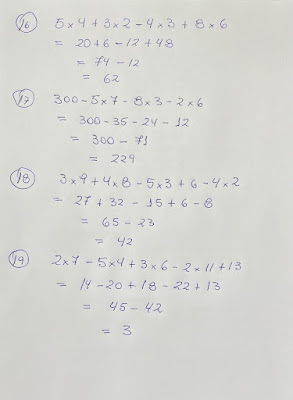 16 5×4+3×2-4×3+8×6
= 20+6-12+48
= 74-12
= 62
17 300-5×7-8×3-2×6
= 300-35-24-12
= 300-71
= 229
18 3×9+4×8-5×3+6-4×2
= 27+32-15+6-8
= 65-23
= 42
19 2×7-5×4+3×6-2×11+13
= 14-20+18-22+13
= 45-42
= 3